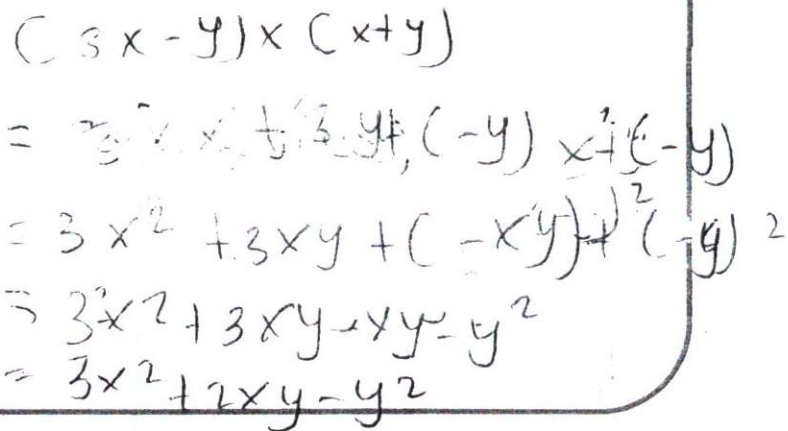 (3x-y)×(x+y)
= 3 x x + 3 y + (-y) x + (-y)
= 3x² + 3xy + (-xy) + (-y)²
= 3x² + 3xy - xy - y²
= 3x² + 2xy - y²